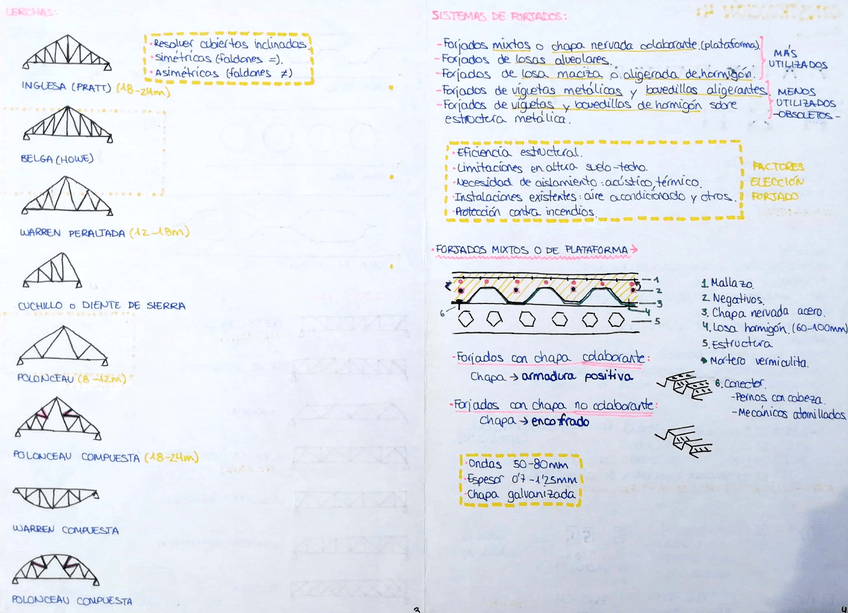 CERCHAS:
· Resolver cubiertas inclinadas.
· Simétricas (faldones =).
· Asimétricas (faldones ≠)
INGLESA (PRATT) (18-24m)
BELGA (HOWE)
WARREN PERALTADA (12-18m)
CUCHILLO O DIENTE DE SIERRA
POLONCEAU (8-12m)
POLONCEAU COMPUESTA (18-24m)
WARREN COMPUESTA
POLONCEAU COMPUESTA
3
SISTEMAS DE FORJADOS:
- Forjados mixtos o chapa nervada colaborante (plataforma)
- Forjados de losas alveolares.
- Forjados de losa maciza o aligerada de hormigón.
MÁS
UTILIZADOS
- Forjados de viguetas metálicas y bovedillas aligerantes
- Forjados de viguetas y bovedillas de hormigón sobre
estructura metálica.
MENOS
UTILIZADOS
- OBSOLETOS -
· Eficiencia estructural.
· Limitaciones en altura suelo-techo.
· Necesidad de aislamiento: acústico, térmico.
· Instalaciones existentes: aire acondicionado y otros.
· Protección contra incendios.
FACTORES
ELECCIÓN
FORJADO
· FORJADOS MIXTOS O DE PLATAFORMA →
1
2
3
4
5
6
1. Mallazo.
2. Negativos.
3. Chapa nervada acero.
4. Losa hormigón. (60-100mm)
5. Estructura
Mortero vermiculita.
6. Conector.
- Pernos con cabeza.
- Mecánicos atornillados.
· Forjados con chapa colaborante:
Chapa → armadura positiva
· Forjados con chapa no colaborante:
Chapa → encofrado
· Ondas 50-80mm
· Espesor 0'7 - 1'25mm
· Chapa galvanizada
4